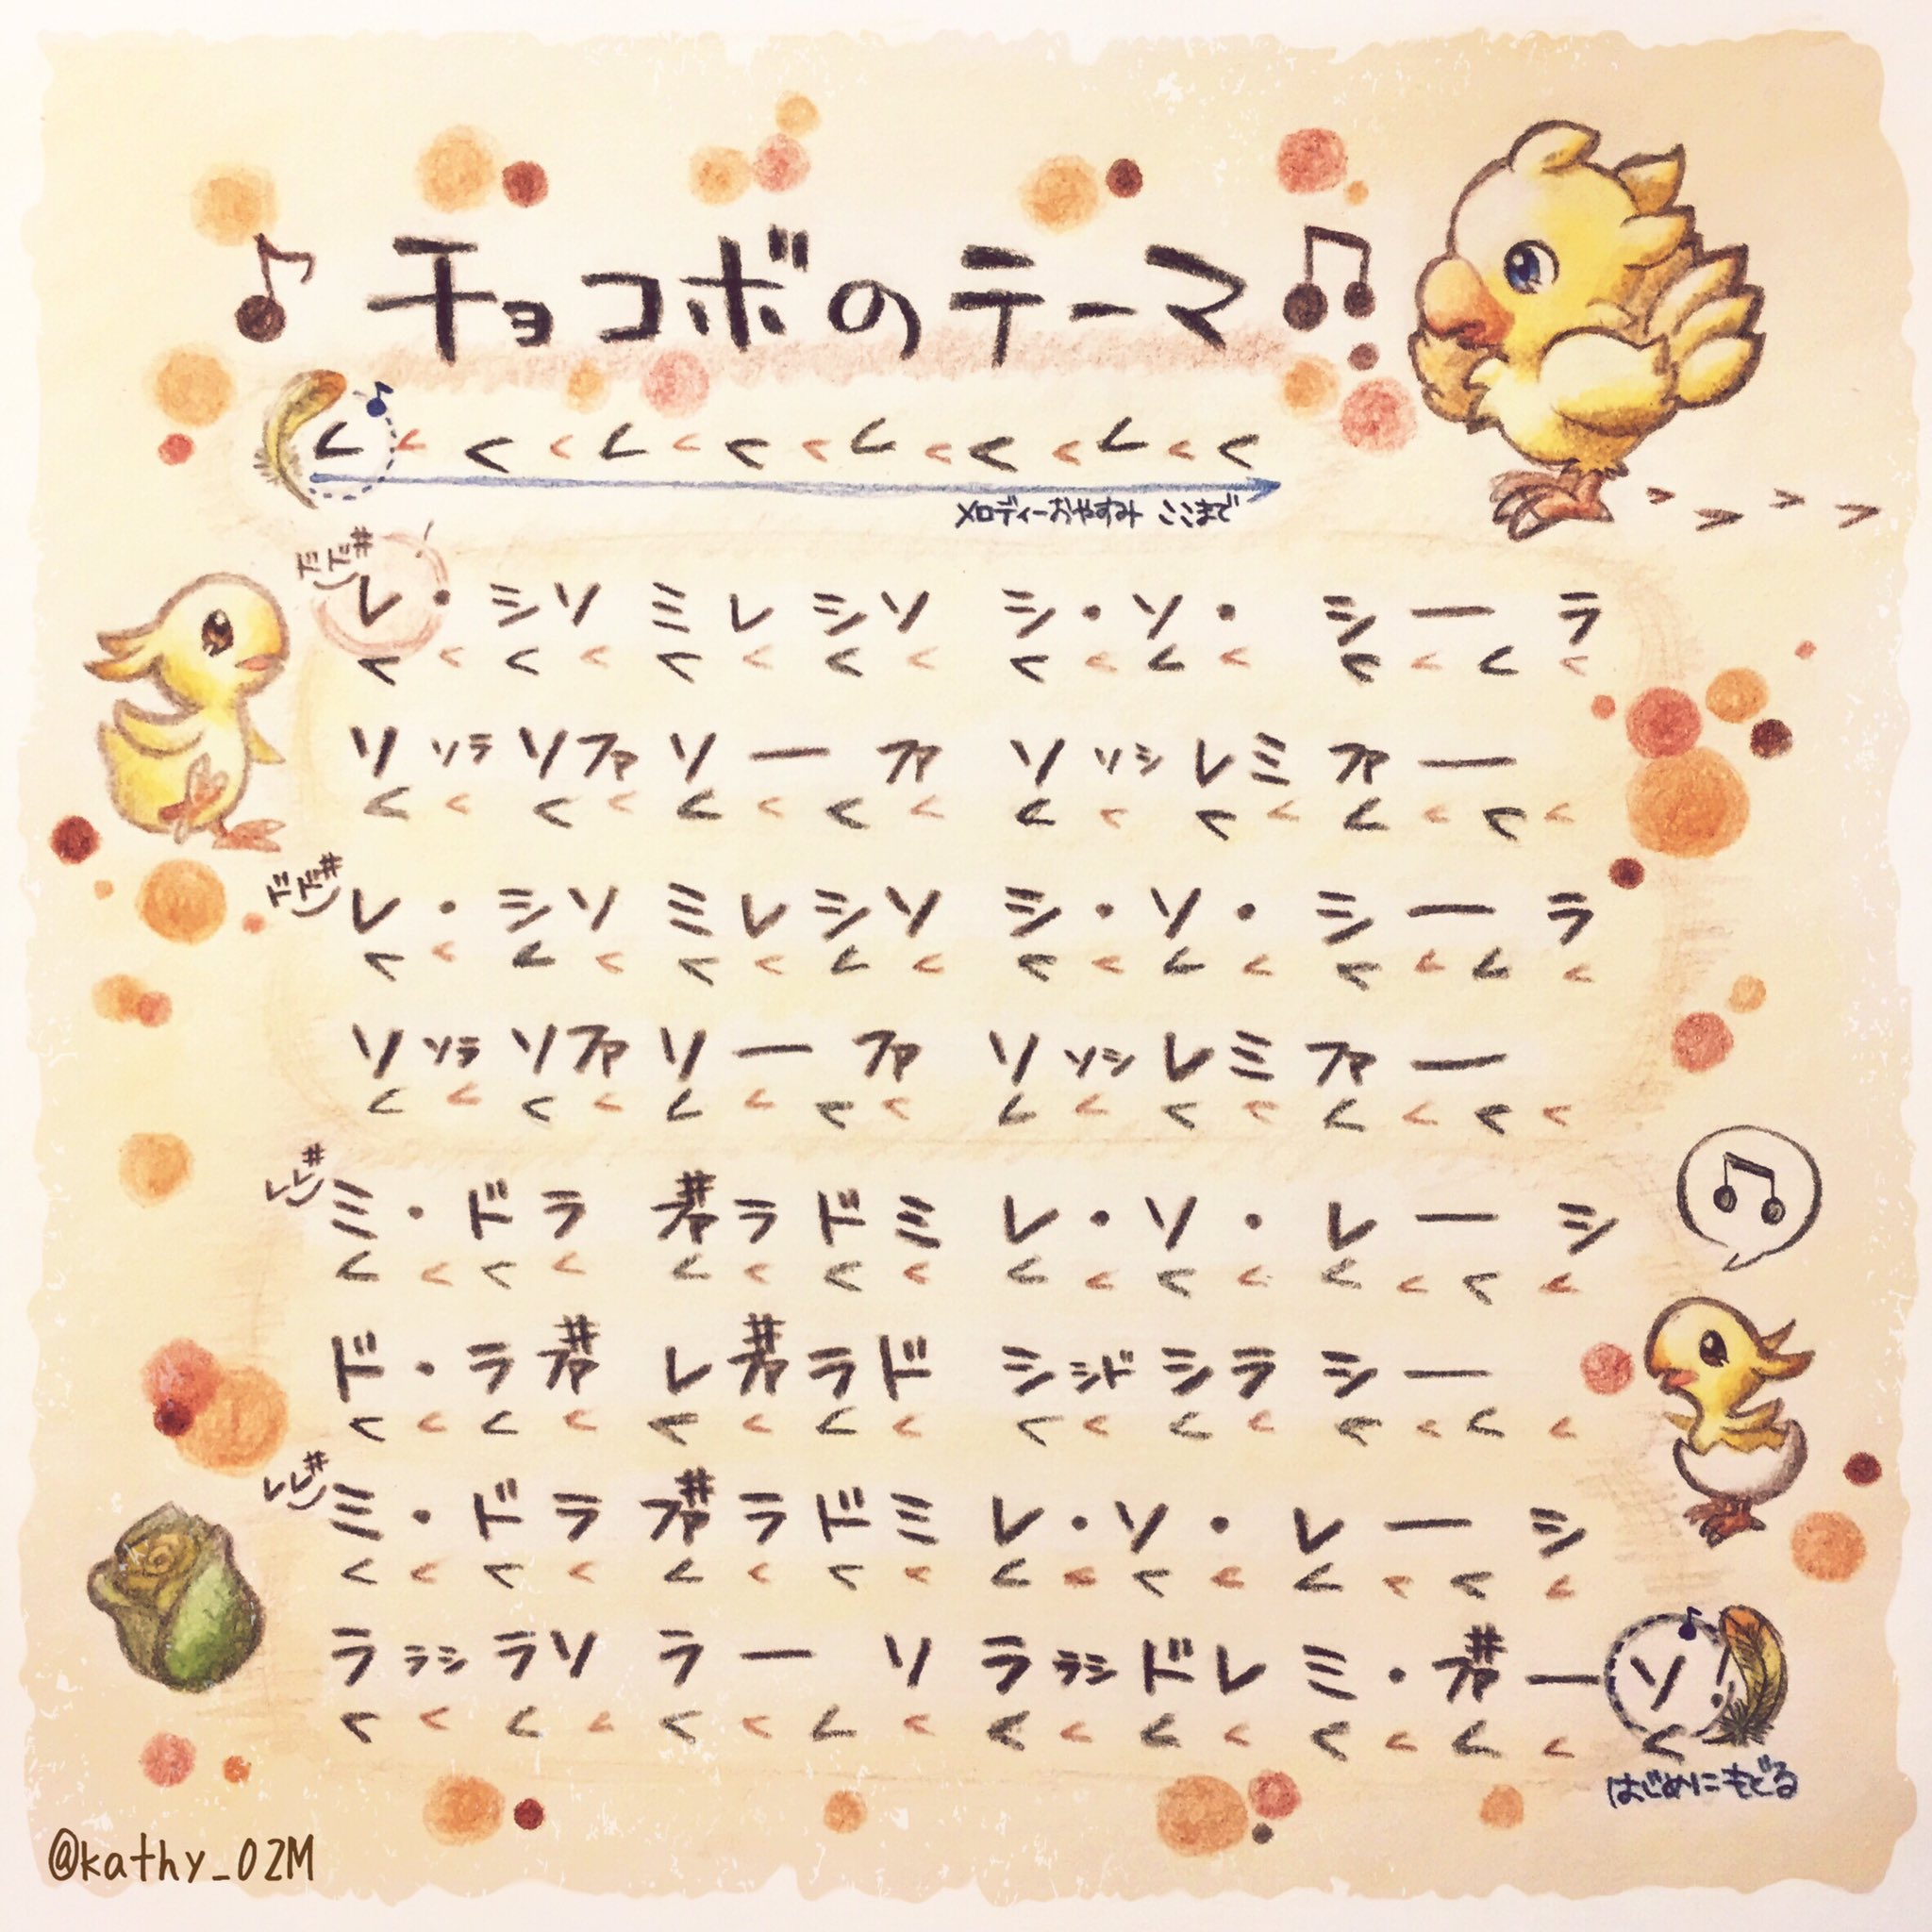 チョコボのテーマ
メロディーおやすみ ここまで
ドド#
レ・シソ ミレシソ シ・ソ・ シー ラ
ソ ソラ ソファ ソー ファ ソ ソシ レミ ファー
ドド#
レ・シソ ミレシソ シ・ソ・ シー ラ
ソ ソラ ソファ ソー ファ ソ ソシ レミ ファー
レレ#
ミ・ドラ ファ#ラドミ レ・ソ・ レー シ
ド・ラファ# レファ#ラド シ シド シラ シー
レレ#
ミ・ドラ ファ#ラドミ レ・ソ・ レー シ
ラ ラシ ラソ ラー ソ ラ ラシ ドレ ミ・ファ#ー ソ
はじめにもどる
@kathy_02M